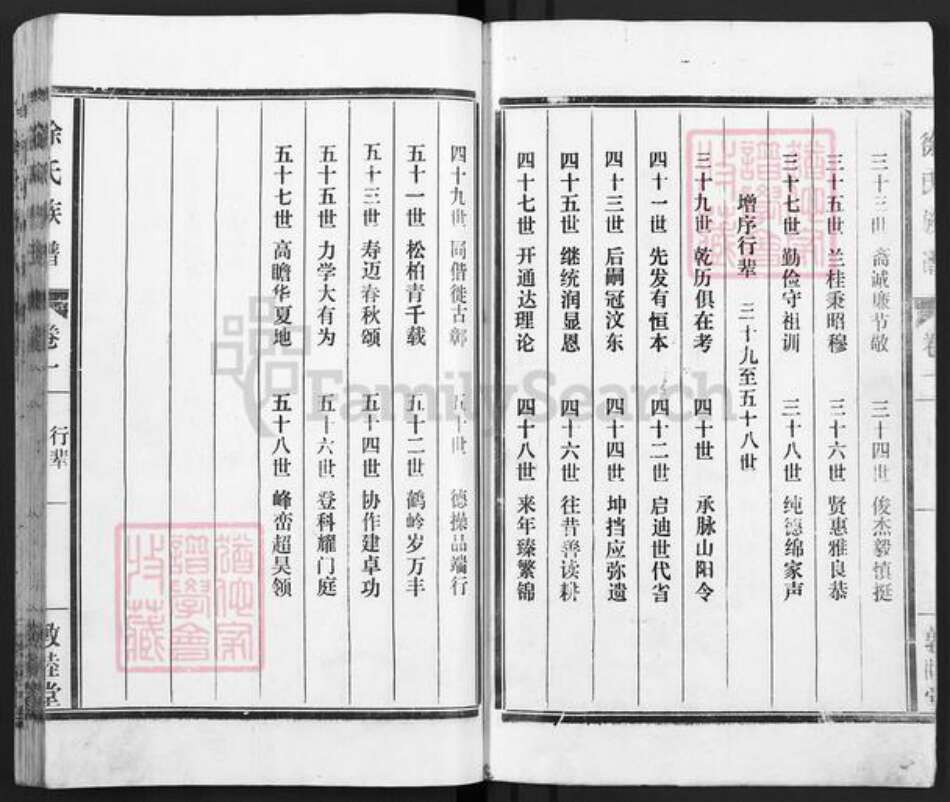 三十三世 裔诚廉节敬 三十四世 俊杰毅慎挺
三十五世 兰桂秉昭穆 三十六世 贤惠雅良恭
三十七世 勤俭守祖训 三十八世 纯德绵家声
增序行辈 三十九至五十八世
三十九世 乾历俱在考 四十世 承脉山阳令
四十一世 先发有恒本 四十二世 启迪世代省
四十三世 后嗣冠汶东 四十四世 坤挡应弥遗
四十五世 继统润显恩 四十六世 往昔善读耕
四十七世 开通达理论 四十八世 来年臻繁锦
四十九世 同偕徙古彰 五十世 德操品端行
五十一世 松柏青千载 五十二世 鹤岭岁万丰
五十三世 寿迈春秋颂 五十四世 协作建卓功
五十五世 力学大有为 五十六世 登科耀门庭
五十七世 高瞻华夏地 五十八世 峰峦超昊领
徐氏族谱 卷一 行辈 敦睦堂
FamilySearch